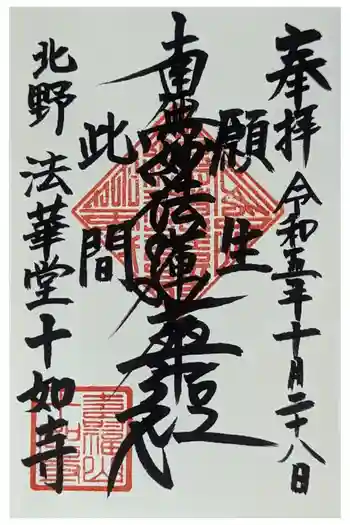 奉拝 令和五年十月二十八日
願生
南無妙法蓮華経
此間
北野 法華堂 十如寺